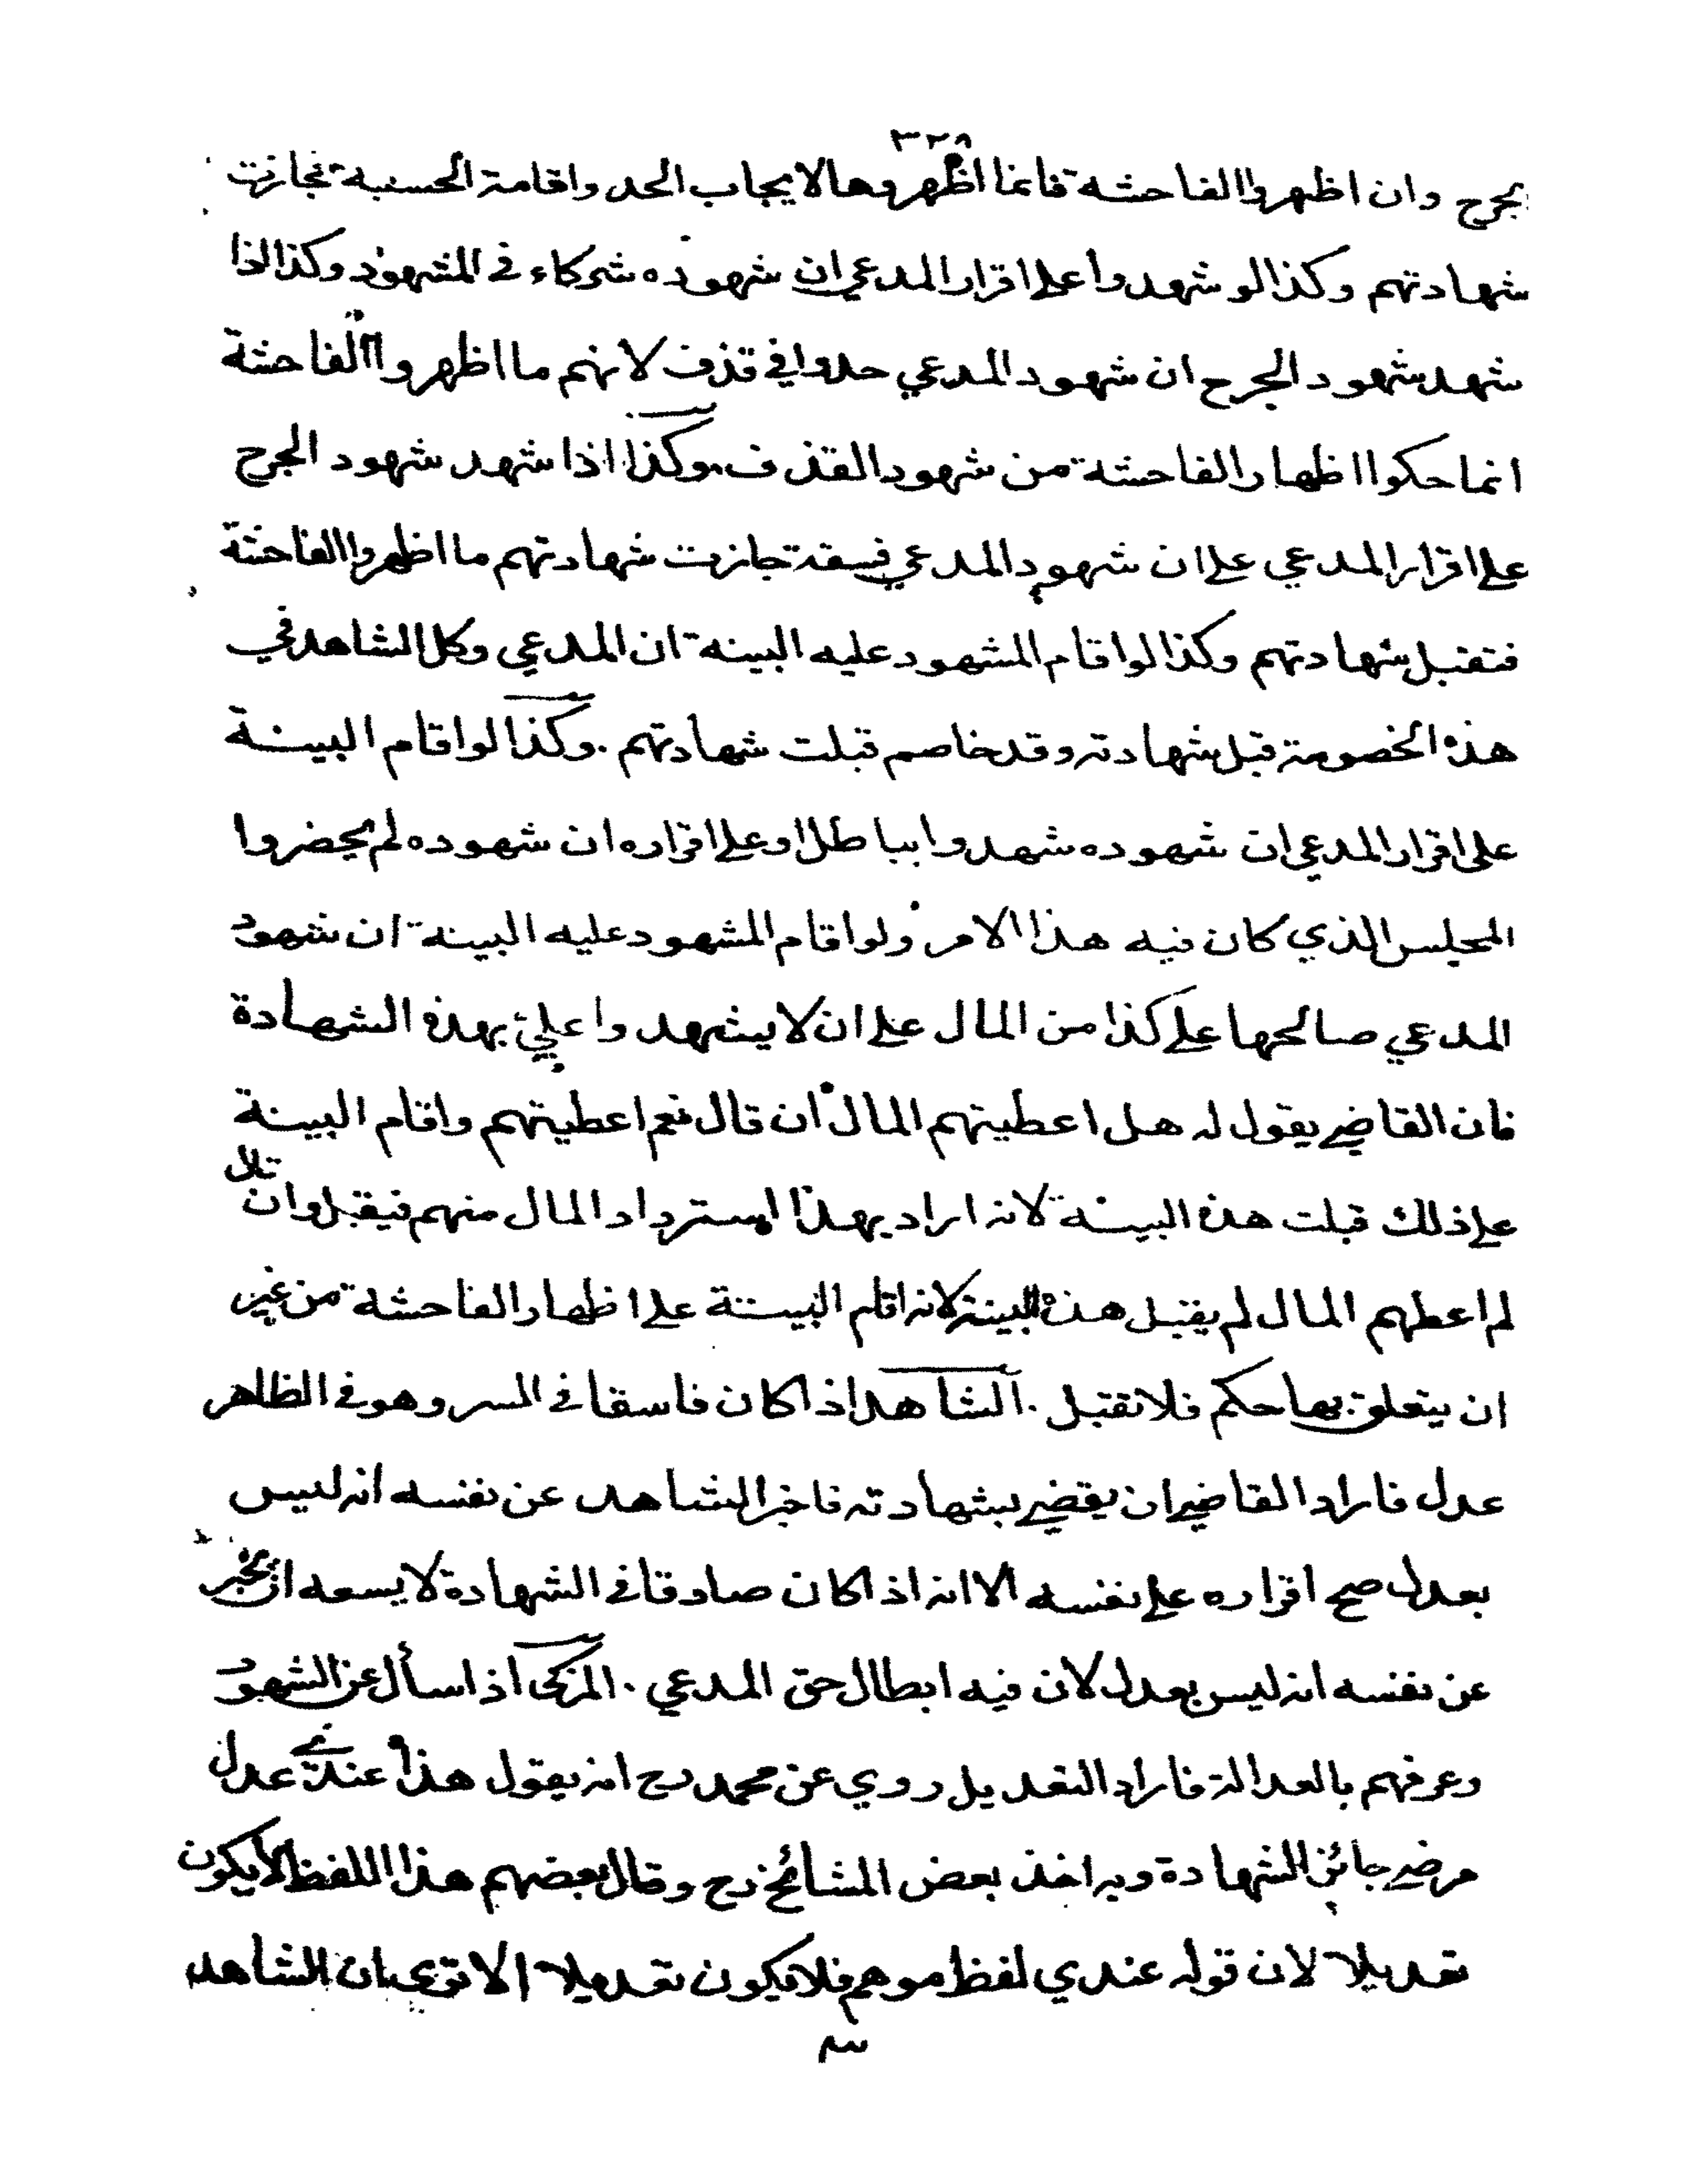 ٣٢٨
بجرح وان اظهروا الفاحشة فانما اظهروها لايجاب الحد واقامة الحسبة فجازت
شهادتهم وكذا لو شهدوا على اقرار المدعي ان شهوده شركاء في المشهود وكذا اذا
شهد شهود الجرح ان شهود المدعي حدوا في قذف لانهم ما اظهروا الفاحشة
انما حكوا اظهار الفاحشة من شهود القذف وكذا اذا شهد شهود الجرح
على اقرار المدعي على ان شهود المدعي فسقة جازت شهادتهم ما اظهروا الفاحشة
فتقبل شهادتهم وكذا لو اقام المشهود عليه البينة ان المدعي وكل الشاهد في
هذه الخصومة قبل شهادته وقد خاصم قبلت شهادتهم . وكذا لو اقام البينة
على اقرار المدعي ان شهوده شهدوا بباطل او على اقراره ان شهوده لم يحضروا
المجلس الذي كان فيه هذا الامر ولو اقام المشهود عليه البينة ان شهود
المدعي صالحها على كذا من المال على ان لا يشهدوا علي بهذه الشهادة
فان القاضي يقول له هل اعطيتهم المال ان قال نعم اعطيتهم واقام البينة
على ذلك قبلت هذه البينة لانه اراد بهذا استرداد المال منهم فيقبل وان قال
لم اعطهم المال لم يقبل هذه البينة لانه اقام البينة على اظهار الفاحشة من غير
ان يتعلق بها حكم فلا تقبل . الشاهد اذا كان فاسقا في السر وهو في الظاهر
عدل فاراد القاضي ان يقضي بشهادته فاخبر الشاهد عن نفسه انه ليس
بعدل صح اقراره على نفسه الا انه اذا كان صادقا في الشهادة لا يسعه ان يخبر
عن نفسه انه ليس بعدل لان فيه ابطال حق المدعي . المزكى اذا سأل عن الشهود
وعرفهم بالعدالة فاراد التعديل روي عن محمد رح انه يقول هذا عندي عدل
مرضي جائز الشهادة وبه اخذ بعض المشائخ رح وقال بعضهم هذا اللفظ لا يكون
تعديلا لان قوله عندي لفظ موهم فلا يكون تعديلا الا ترى بان الشاهد